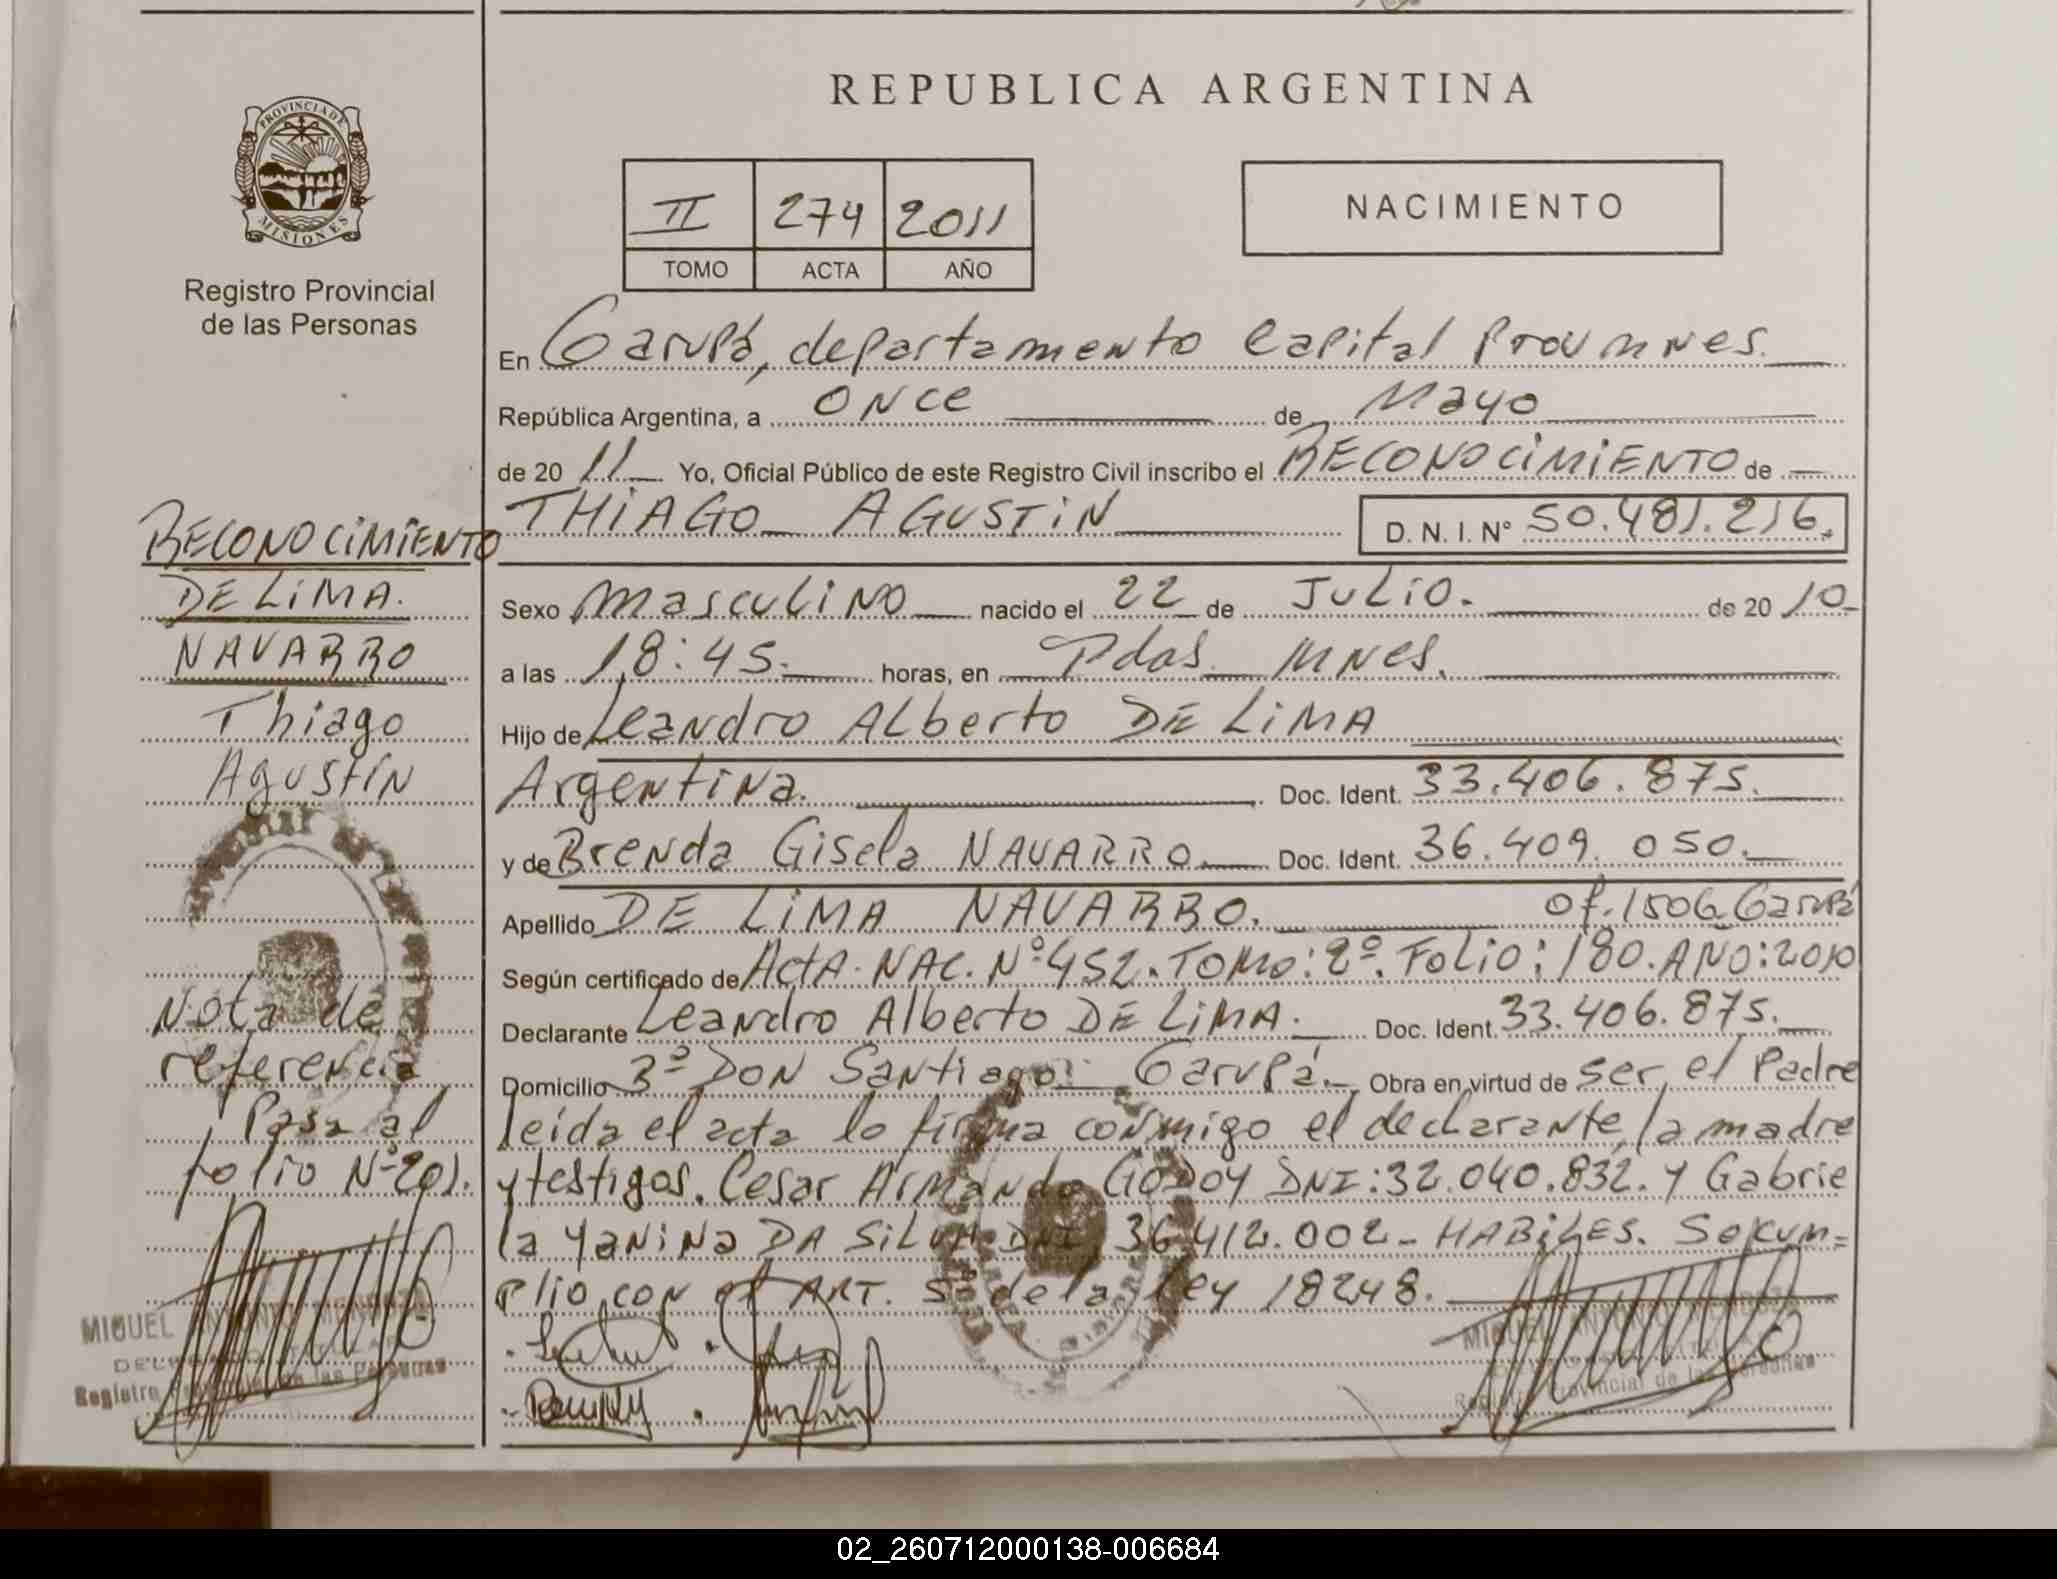 REPUBLICA ARGENTINA
PROVINCIA DE
MISIONES
Registro Provincial
de las Personas
II 274 2011
TOMO ACTA AÑO
NACIMIENTO
En Garupá, departamento Capital Prov Mnes.
República Argentina, a once de Mayo
de 20 11 Yo, Oficial Público de este Registro Civil inscribo el RECONOCIMIENTO de
THIAGO AGUSTIN D. N. I. N° 50.481.216.
Sexo masculino nacido el 22 de Julio. de 20 10
a las 18:45. horas, en Pdas. Mnes.
Hijo de Leandro Alberto DE LiMA
Argentina. Doc. Ident. 33.406.875.
y de Brenda Gisela NAVARRO Doc. Ident. 36.409.050.
Apellido DE LiMA NAVARRO. of. 1506 Garupá
Según certificado de Acta. NAC. N°452. TOMO: 2º. FOLIO: 180. AÑO: 2010
Declarante Leandro Alberto DE LiMA. Doc. Ident. 33.406.875.
Domicilio 3º DON Santiago. Garupá. Obra en virtud de ser el Padre
leída el acta lo firma conmigo el declarante, la madre
y testigos. Cesar Armando GODOY DNI: 32.040.832. y Gabrie
la Yanina DA SILVA DNI 36.412.002 - HABILES. Se cum=
plio con el ART. 5º de la Ley 18248.
RECONOCIMIENTO
DE LiMA.
NAVARRO
Thiago
Agustín
Nota de
referencia
Pasa al
folio N°201.
MIGUEL ANTONIO MENDOZA
DELEGADO TITULAR
Registro Provincial de las Personas
MIGUEL ANTONIO MENDOZA
Registro Provincial de las Personas
02_260712000138-006684